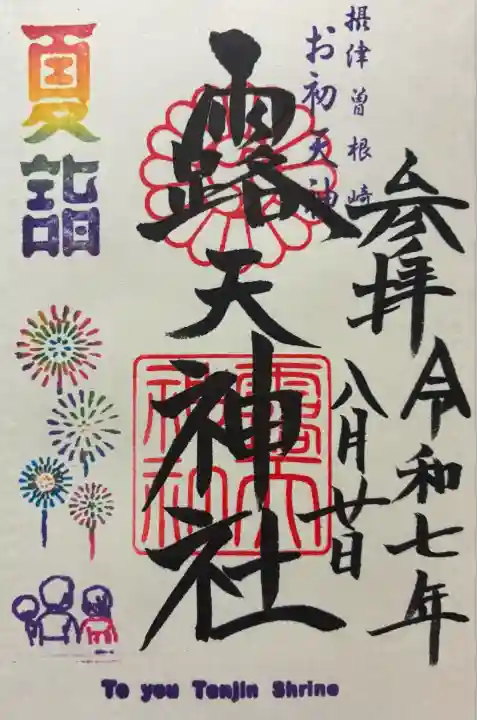 摂津曽根崎
お初天神
参拝令和七年
八月廿日
露天神社
夏詣
To you Tenjin Shrine